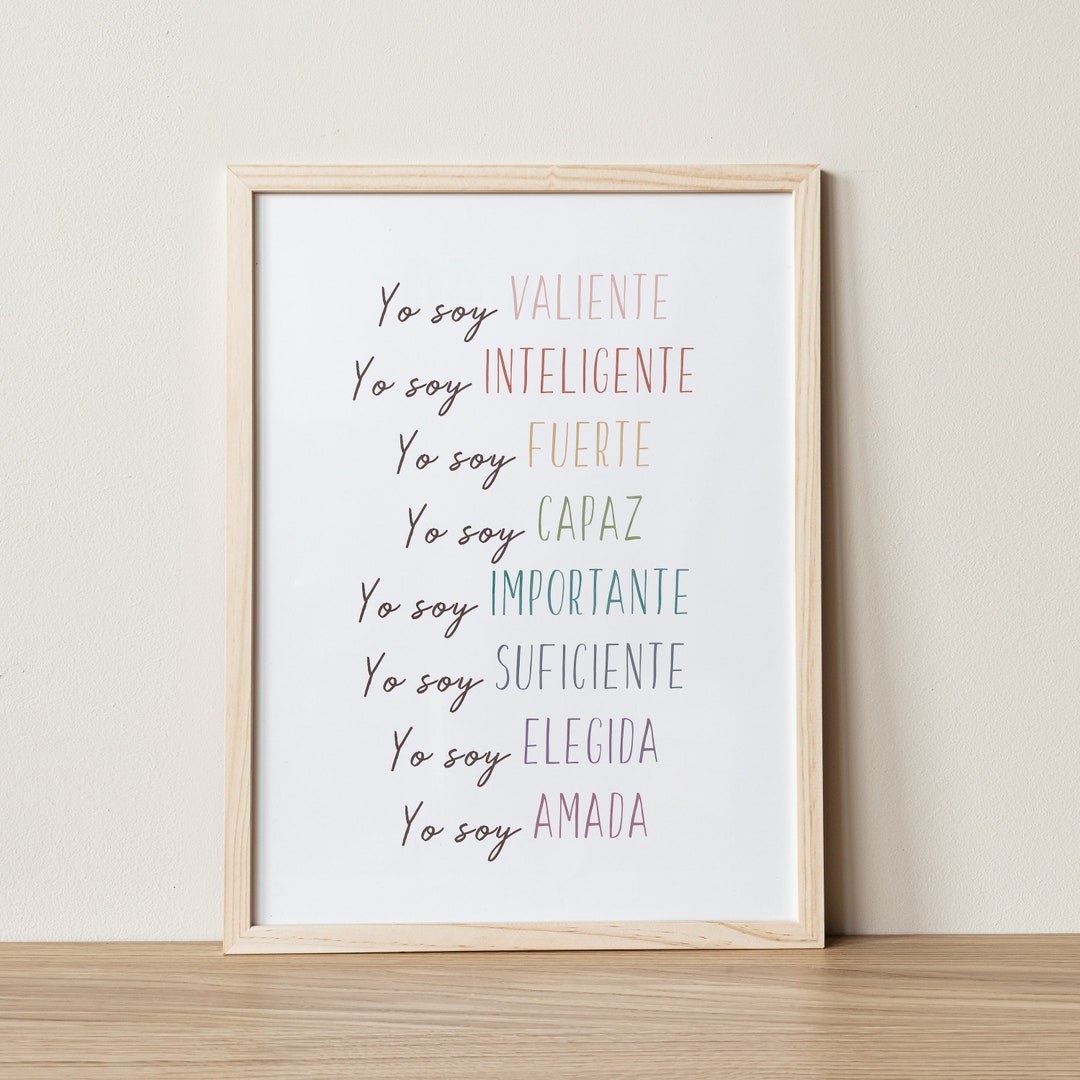 Yo soy VALIENTE
Yo soy INTELIGENTE
Yo soy FUERTE
Yo soy CAPAZ
Yo soy IMPORTANTE
Yo soy SUFICIENTE
Yo soy ELEGIDA
Yo soy AMADA